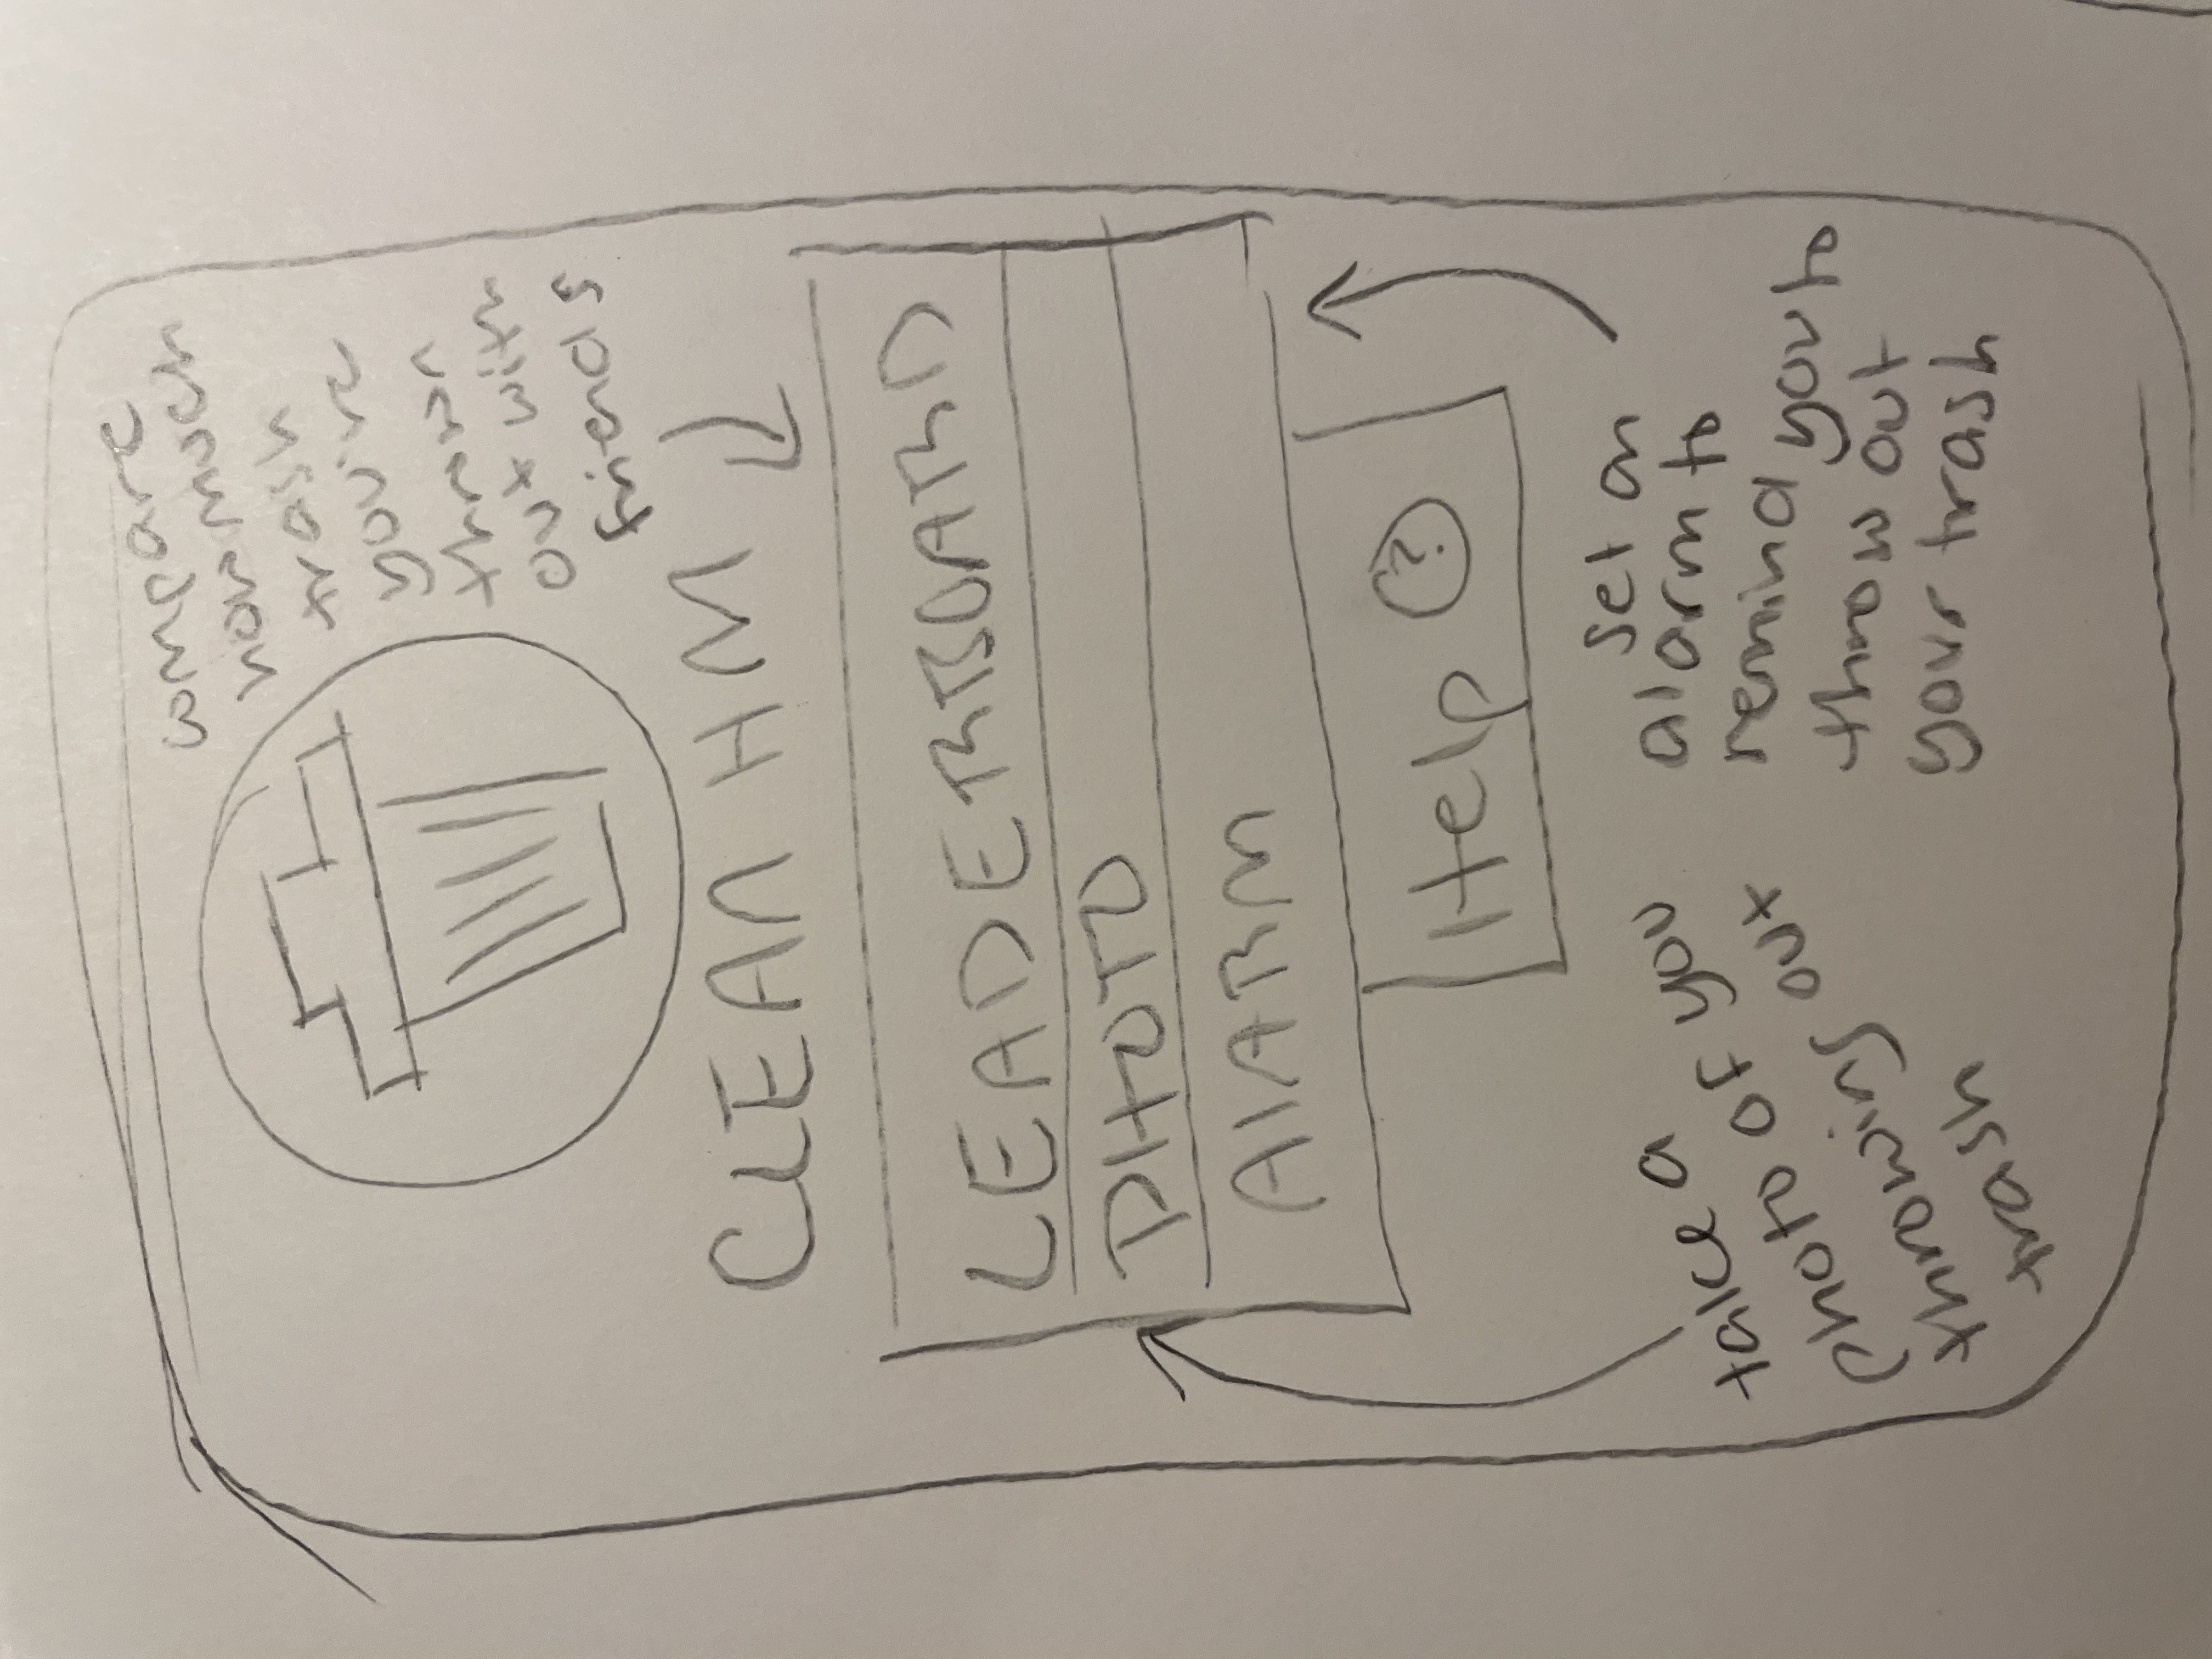 compare
how much
trash
you've
thrown
out with
friends
CLEAN HM
LEADERBOARD
PHOTO
AlARM
Help ?
take a
photo of you
throwing out
trash
set an
alarm to
remind you to
throw out
your trash